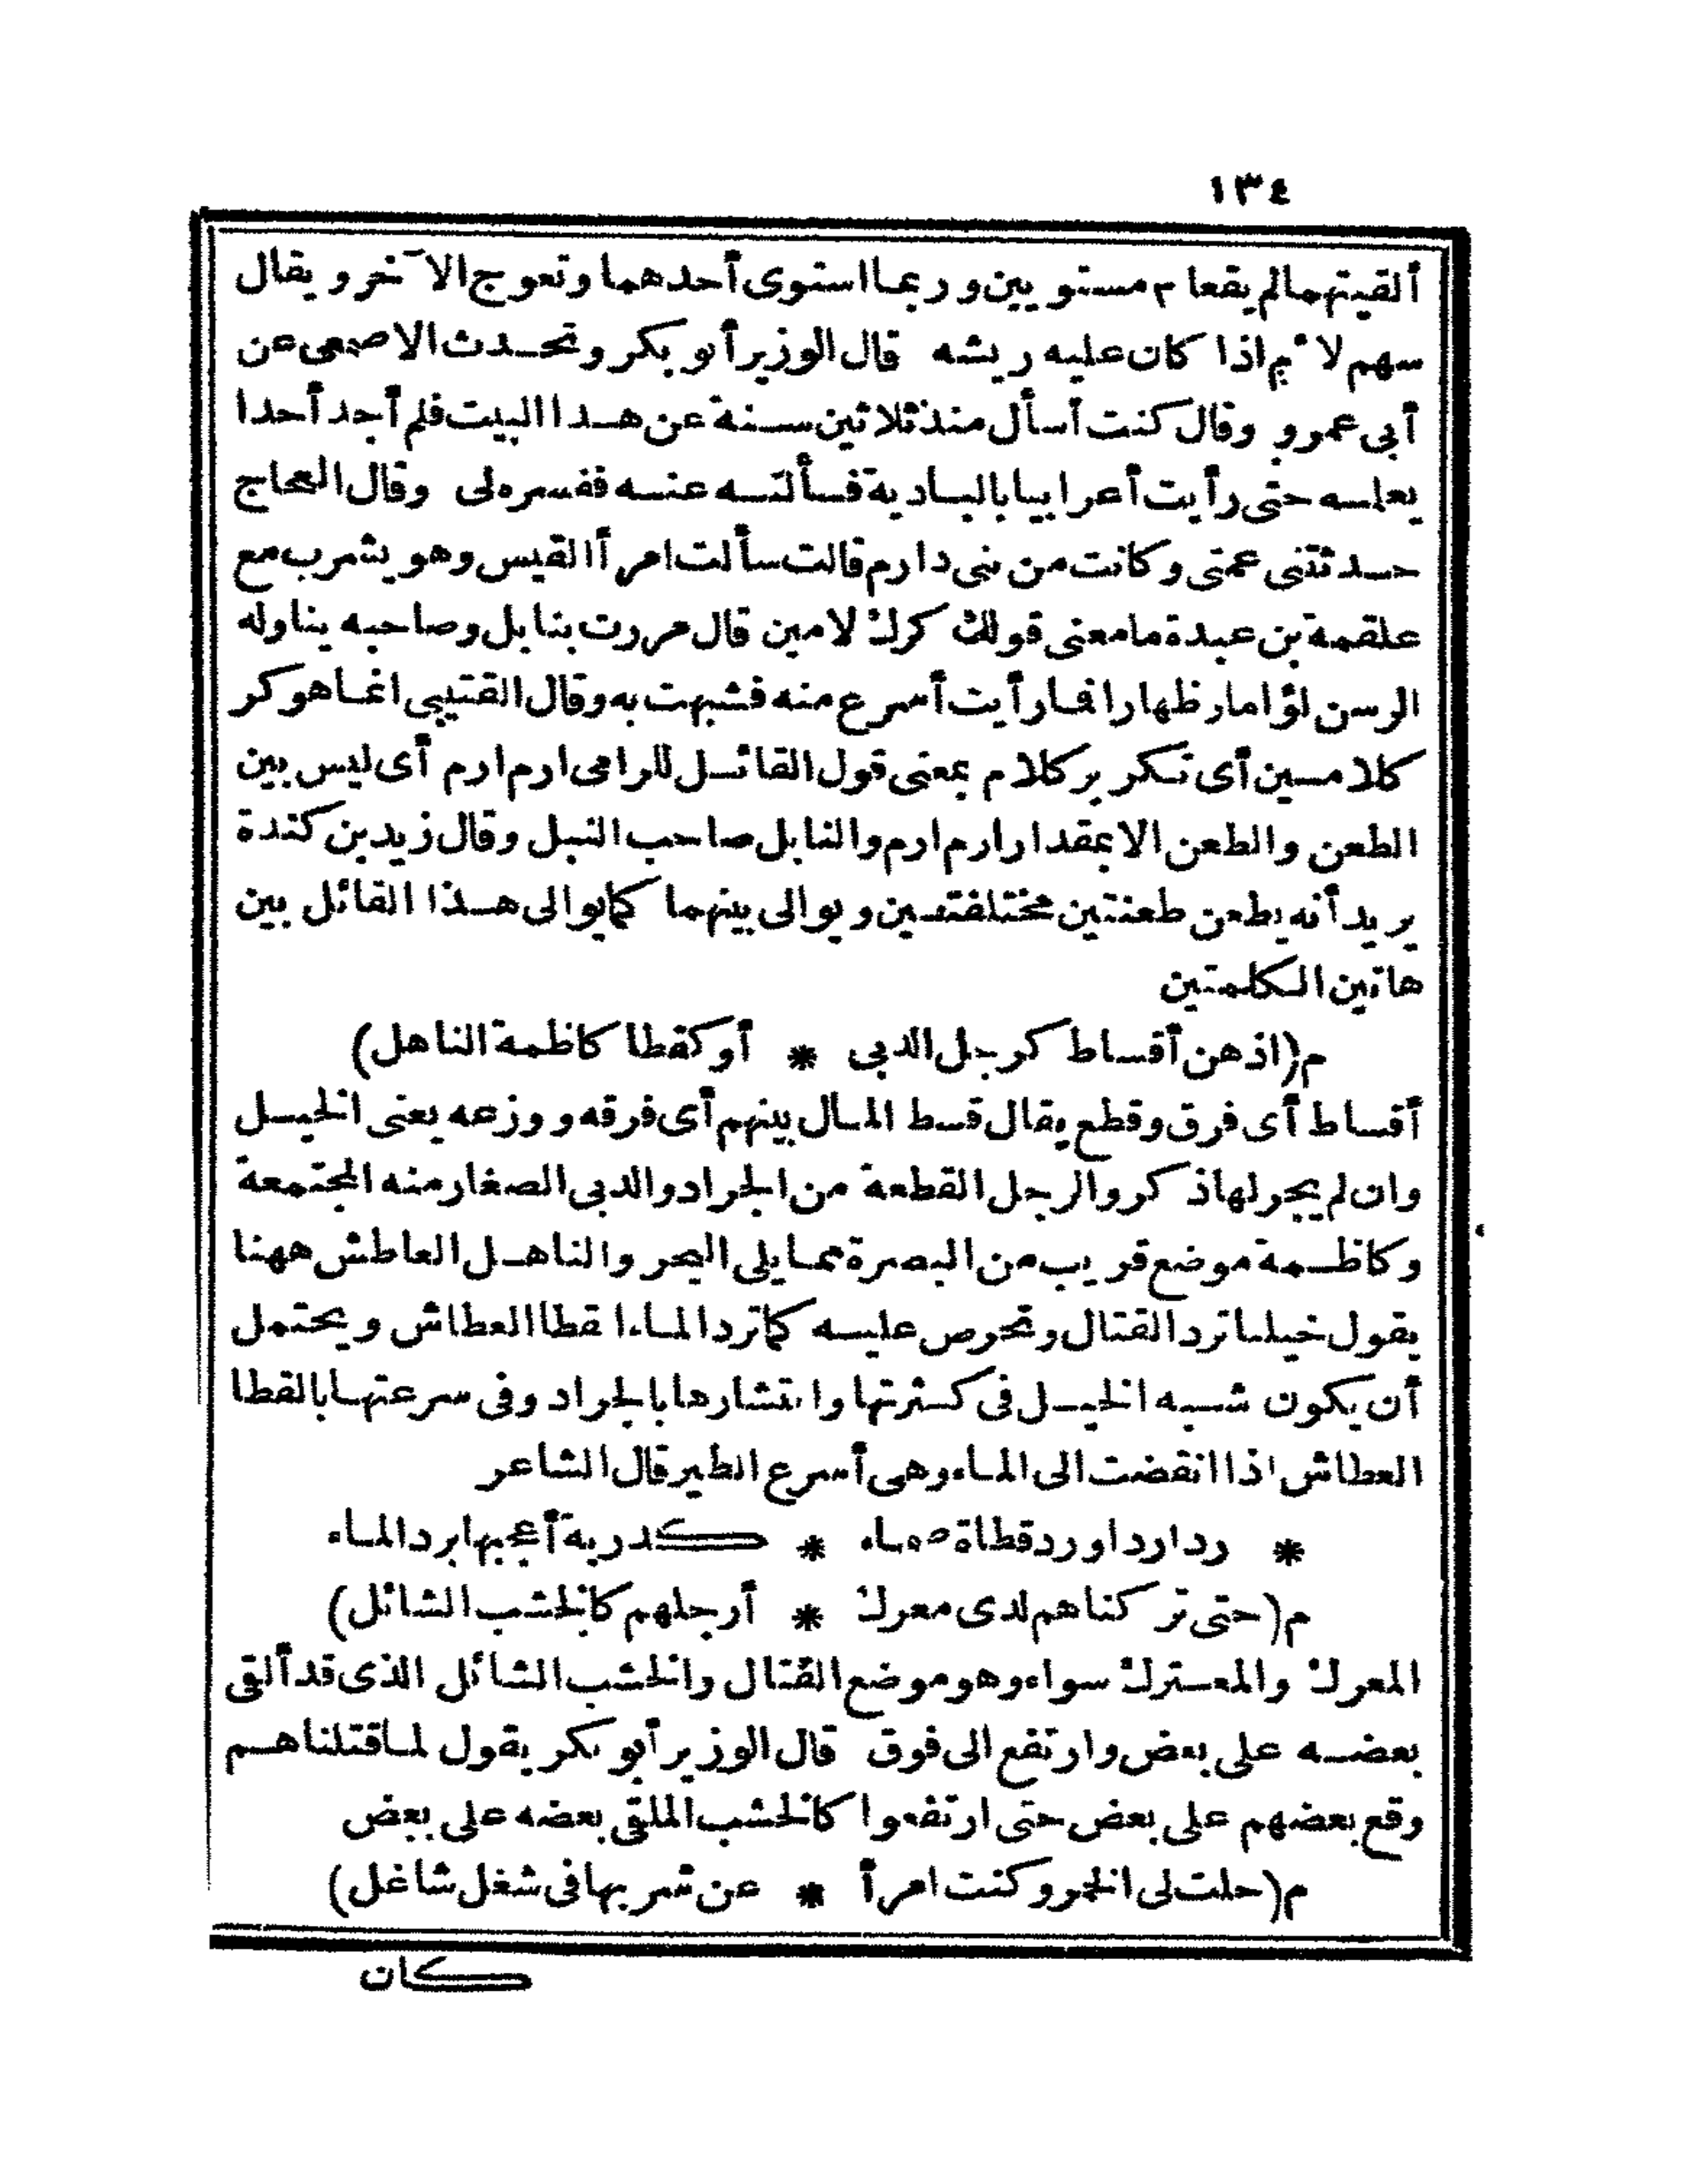 ١٣٤
ألقيتهما لم يقعا م مستويين وربما استوى أحدهما وتعوج الآخر ويقال
سهم لأم اذا كان عليه ريشه قال الوزير أبو بكر وتحدث الاصمعى عن
أبى عمرو وقال كنت أسأل منذ ثلاثين سنة عن هذا البيت فلم أجد أحدا
يعلمه حتى رأيت أعرابيا بالبادية فسألته عنه ففسره لى وقال العجاج
حدثتنى عمتى وكانت من بنى دارم قالت سألت امرأ القيس وهو يشرب مع
علقمة بن عبدة ما معنى قولك كرك لامين قال مررت بنابل وصاحبه يناوله
الريش لؤاما وظهارا فما رأيت أسرع منه فشبهت به وقال القتيبى انما هو كر
كلامين أى تكرير كلام بمعنى قول القائل للرامى ارم ارم أى ليس بين
الطعن والطعن الا بمقدار ارم ارم والنابل صاحب النبل وقال زيد بن كندة
يريد أنه يطعن طعنتين مختلفتين ويوالى بينهما كما يوالى هذا القائل بين
هاتين الكلمتين
م(اذ هن أقساط كرجل الدبى * أو كقطا كاظمة الناهل)
أقساط أى فرق وقطع يقال قسط المال بينهم أى فرقه ووزعه يعنى الخيل
وان لم يجر لها ذكر والرجل القطعة من الجراد والدبى الصغار منه المجتمعة
وكاظمة موضع قريب من البصرة مما يلى البحر والناهل العاطش ههنا
يقول خيلنا ترد القتال وتحرص عليه كما ترد الماء القطا العطاش ويحتمل
أن يكون شبه الخيل فى كثرتها وانتشارها بالجراد وفى سرعتها بالقطا
العطاش اذا انقضت الى الماء وهى أسرع الطير قال الشاعر
* ردا ردا ورد قطاة صماء * كدرية أعجبها برد الماء
م(حتى تركناهم لدى معرك * أرجلهم كالخشب الشائل)
المعرك والمعترك سواء وهو موضع القتال والخشب الشائل الذى قد ألقى
بعضه على بعض وارتفع الى فوق قال الوزير أبو بكر يقول لما قتلناهم
وقع بعضهم على بعض حتى ارتفعوا كالخشب الملقى بعضه على بعض
م(حلت لى الخمر وكنت امرأ * عن شربها فى شغل شاغل)
كان